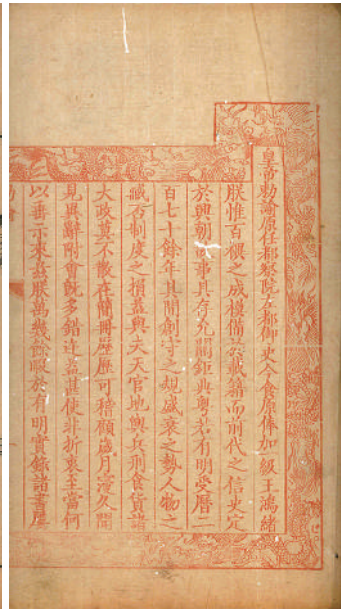 皇帝勅諭原任都察院左都御史今食原俸加一級王鴻緒
朕惟百禩之成模備於載籍而前代之信史定
於興朝事具存尤關鉅典粤若有明受曆二
百七十餘年其間創守之規盛衰之勢人物之
臧否制度之損益與夫天官地輿兵刑食貨諸
大政莫不散在簡冊歷歷可稽顧歲月寖久聞
見異辭附會既多錯迕益甚使非折衷至當何
以垂示來茲朕萬幾餘暇於有明實錄諸書歷